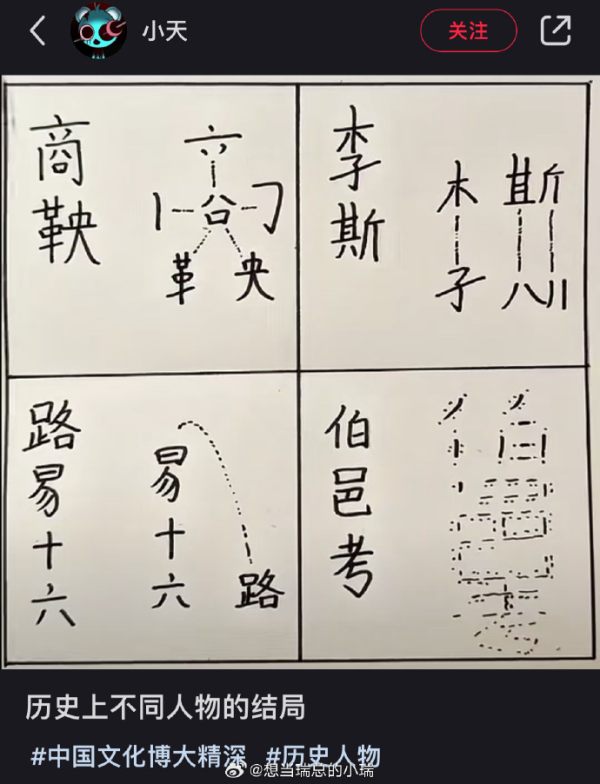 小天
关注
商鞅
李斯
木
子
革
央
路易十六
易十六
路
伯邑考
历史上不同人物的结局
#中国文化博大精深 #历史人物
@想当瑞总的小瑞